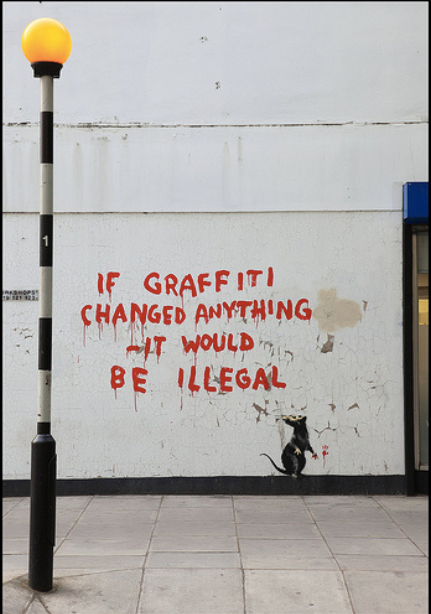 1
IF GRAFFITI
CHANGED ANYTHING
-IT WOULD
BE ILLEGAL